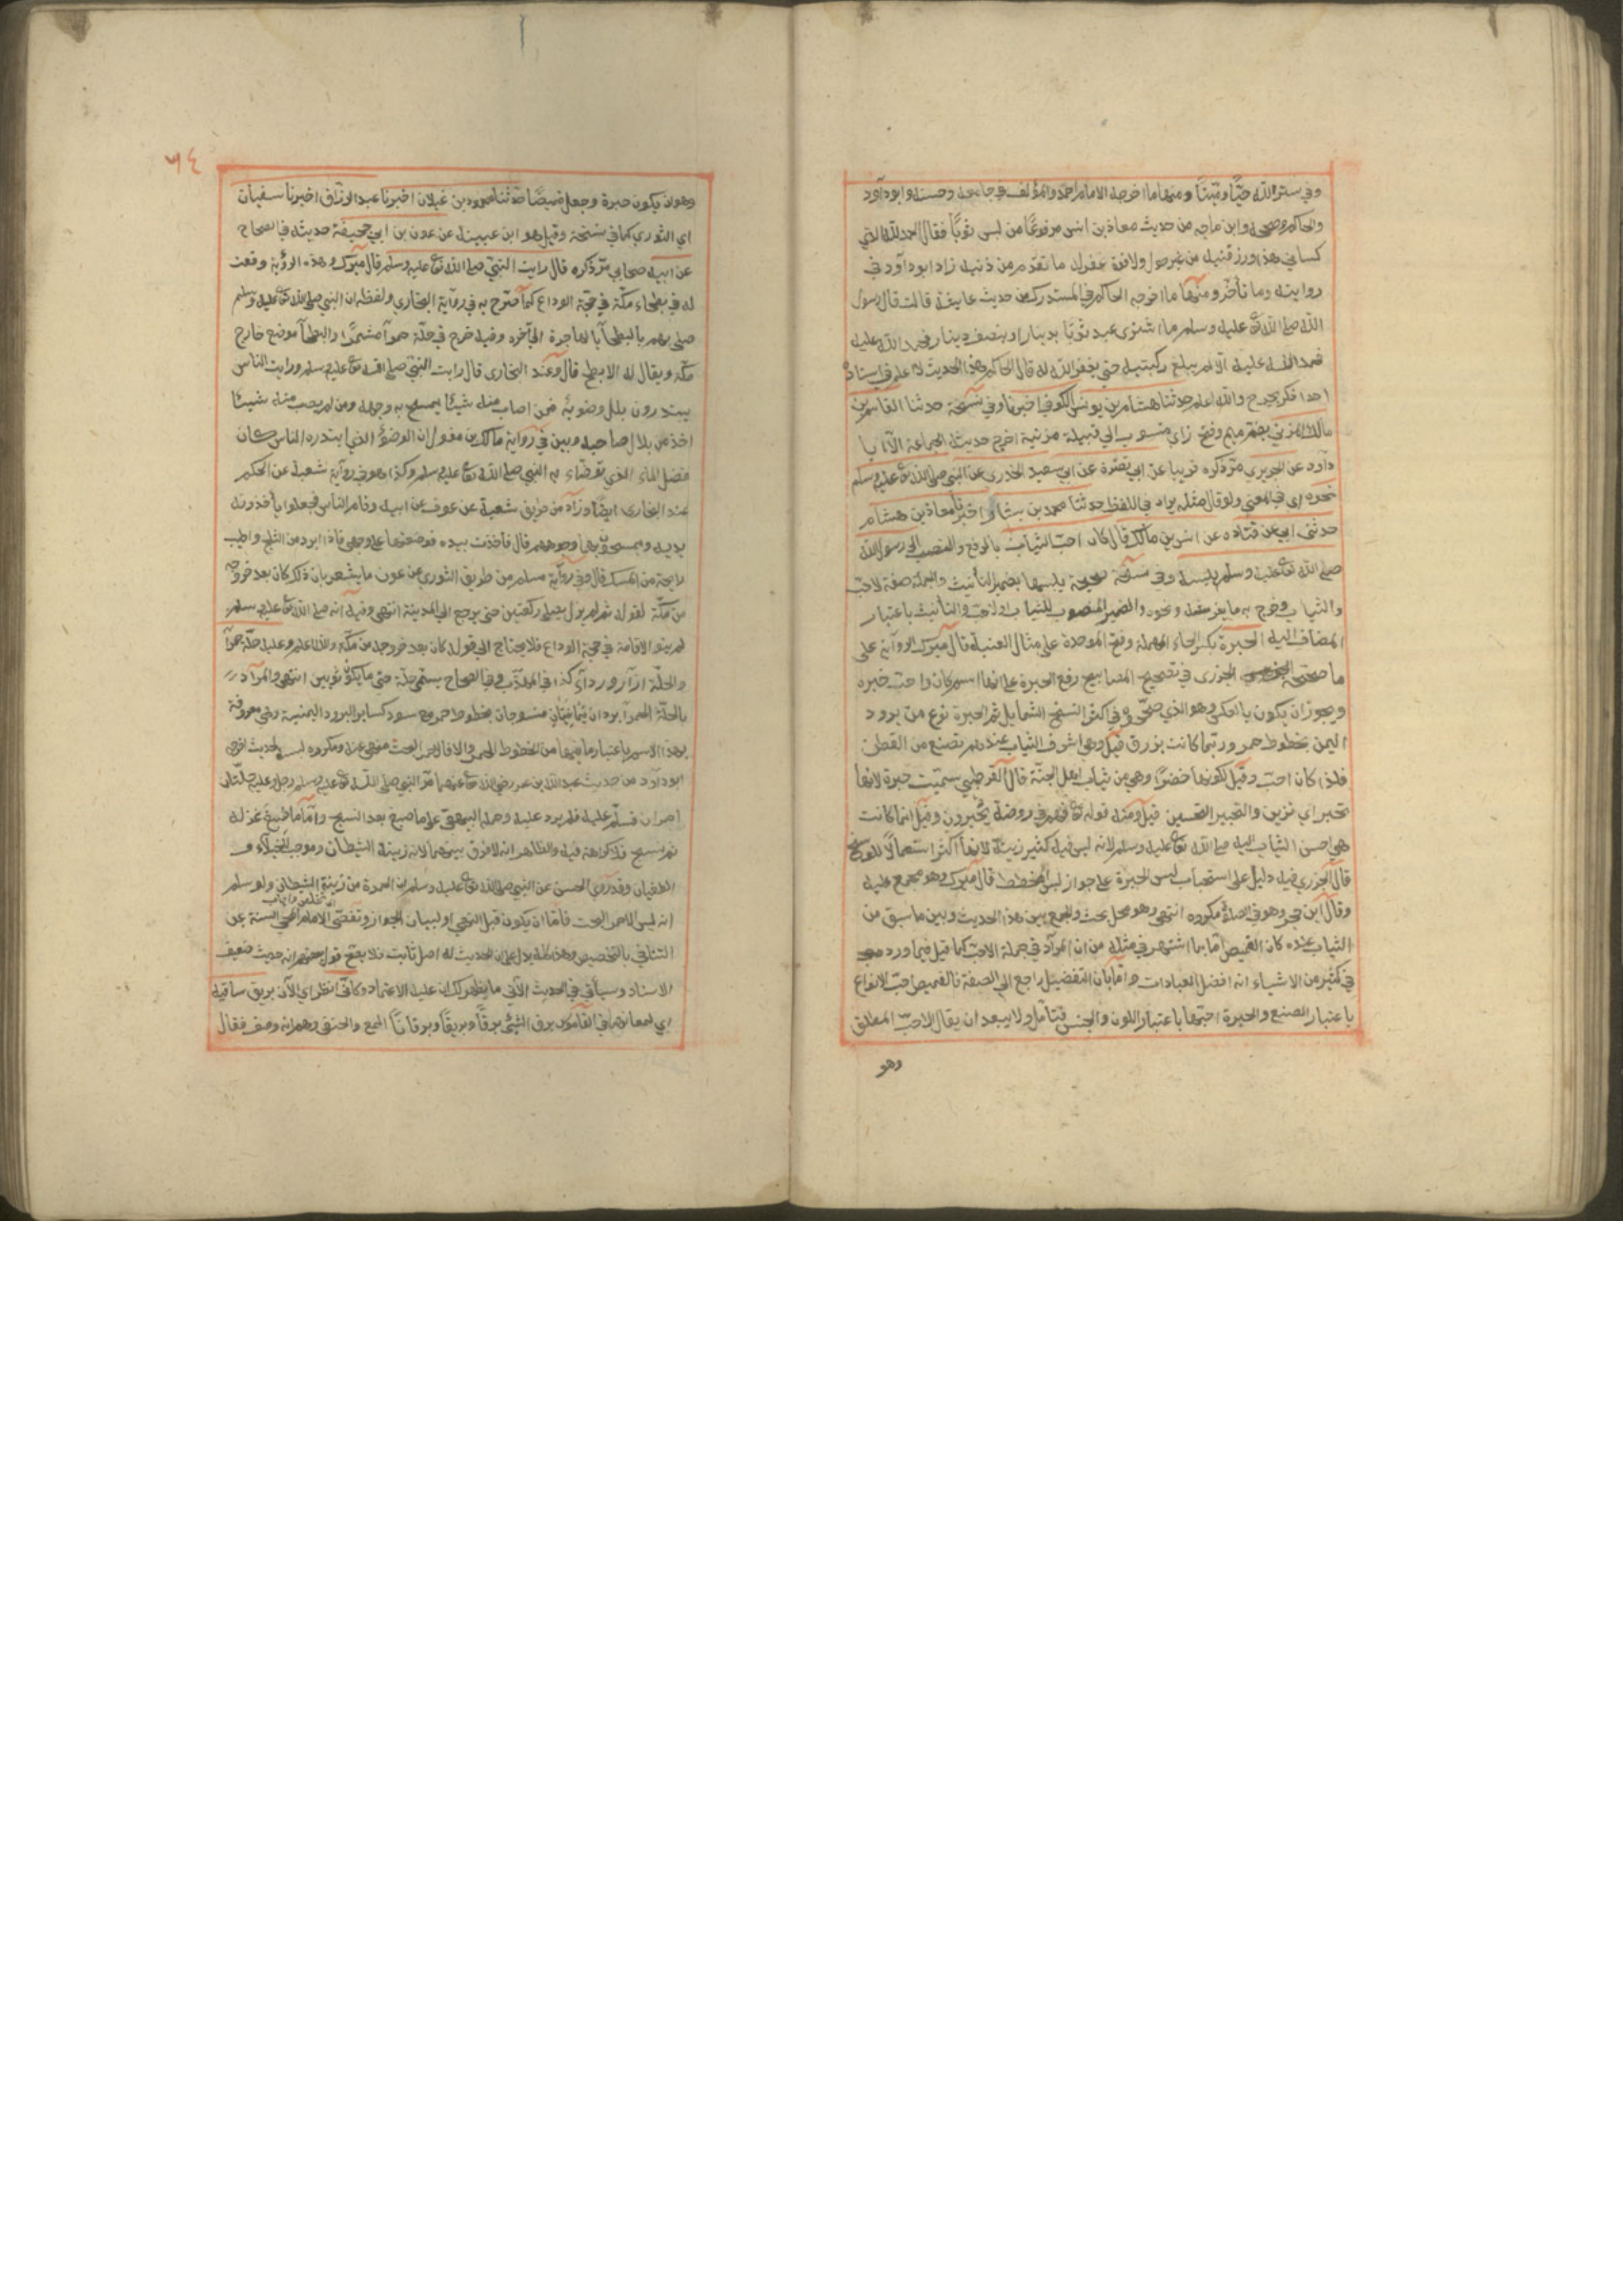 وفي ستر الله حيًّا وميتًا ومنها ما اخرجه الامام احمد والمؤلف في جامعه وحسنه وابو داود
والحاكم وصححه وابن ماجه من حديث معاذ بن انس مرفوعًا من لبس ثوبًا فقال الحمد لله الذي
كساني هذا ورزقنيه من غير حول ولا قوة غفر له ما تقدم من ذنبه زاد ابو داود في
روايته وما تأخر ومنها ما اخرجه الحاكم في المستدرك من حديث عايشة قالت قال رسول
الله صلى الله تع عليه وسلم ما اشترى عبد ثوبًا بدينار او بنصف دينار فحمد الله عليه
فحمد الله عليه الا لم يبلغ ركبتيه حتى يغفر الله له قال الحاكم هذا الحديث لا اعلم في اسناده
احدا ذكر بجرح والله اعلم حدثنا هشام بن يونس الكوفي اخبرنا وفي نسخة حدثنا القاسم بن
مالك المزني بضم ميم وفتح زاي منسوب الي قبيلة مزنية اخرج حديثه الجماعة الا ابا
داود عن الجريري مر ذكره قريبا عن ابي نضرة عن ابي سعيد الخدري عن النبي صلى الله تع عليه وسلم
نحوه اي في المعني ولو قال مثله يراد في اللفظ حدثنا محمد بن بشار اخبرنا معاذ بن هشام
حدثني ابي عن قتاده عن انس بن مالك قال كان احب الثياب بالرفع والنصب الي رسول الله
صلى الله تع عليه وسلم يلبسه وفي نسخة صحيحة يلبسها بضمير التأنيث والجملة صفة لاحب
والثياب وخرج به ما يفرشه ونحوه والضمير المنصوب للثياب او لاحب والتأنيث باعتبار
المضاف اليه الحبرة بكسر الحاء المهملة وفتح الموحدة على مثال العنبة قال ميرك الرواية على
ما صححه الجزري في تصحيح المصابيح رفع الحبرة على انها اسم كان واحب خبره
ويجوز ان يكون بالعكس وهو الذي صححوه في اكثر النسخ الشمايل ثم الحبرة نوع من برود
اليمن بخطوط حمر وربما كانت بزرق قيل وهي اشرف الثياب عندهم تصنع من القطن
فلذا كان احب وقيل لكونها خضرًا وهي من ثياب اهل الجنة قال القرطبي سميت حبرة لانها
تحبر اي تزين والتحبير التحسين قيل ومنه قوله تع فهم في روضة يحبرون وقيل انما كانت
هي احسن الثياب اليه صلى الله تع عليه وسلم لانه ليس فيه كثير زينة لانها اكثر استعمالًا للوسخ
قال الجزري فيه دليل على استحباب لبس الحبرة على جواز لبس المخطط قال ميرك وهو مجمع عليه
وقال ابن حجر وهو في الصلاة مكروه انتهى وهو محل بحث والجمع بين هذا الحديث وبين ما سبق من
الثياب عنده كان القميص اما بما اشتهر في مثله من ان المراد في جملة الاحب كما قيل فيما ورد
في كثير من الاشياء انه افضل العبادات واما بان التفضيل راجع الي الصفة فالقميص احب الانواع
باعتبار الصنع والحبرة احبها باعتبار اللون والجنس فتامل ولا يبعد ان يقال الاحب المطلق
وهو
٥٤
وهو ان يكون حبرة وجعل قميصًا حدثنا محمود بن غيلان اخبرنا عبد الرزاق اخبرنا سفيان
اي الثوري كما في نسخة وقيل هو ابن عيينة عن عون بن ابي جحيفة حديثه في الصحاح
عن ابيه صحابي مر ذكره قال رايت النبي صلى الله تع عليه وسلم قال ميرك وهذه الرؤية وقعت
له في بطحاء مكة في حجة الوداع كما صرح به في رواية البخاري ولفظه ان النبي صلى الله تع عليه وسلم
صلى بهم بالبطحآ بالهاجرة الي آخره وفيه خرج في حلة حمرآ مشمرًا والبطحآ موضع خارج
مكة ويقال له الابطح قال وعند البخاري قال رايت النبي صلى الله تع عليه وسلم ورايت الناس
يبتدرون بلل وضوئه فمن اصاب منه شيئا يمسح به وجهه ومن لم يصب منه شيئا
اخذ من بلال صاحبه وبين في رواية مالك بن مغول ان الوضوء الذي ابتدره الناس كان
فضل الماء الذي توضاء به النبي صلى الله تع عليه وسلم وكذا هو في رواية شعبة عن الحكم
عند البخاري ايضًا وزاد من طريق شعبة عن عون عن ابيه وقام الناس فجعلوا يأخذون
يديه ويمسحون بها وجوههم قال فاخذت بيده فوضعتها على وجهي فاذا ابرد من الثلج واطيب
رايحة من المسك قال وفي رواية مسلم من طريق الثوري عن عون ما يشعر بان ذلك كان بعد خروجه
من مكة لقوله ثم لم يزل يصلي ركعتين حتى يرجع الي المدينة انتهى وفيه انه صلى الله تع عليه وسلم
لم ينو الاقامة في حجة الوداع فلا يحتاج الي قوله كان بعد خروجه من مكة والله اعلم وعليه حلة حمرآ
والحلة ازار وردآء كذا في المهذب وفي الصحاح يسمى حلة حتى ما يكون ثوبين انتهى والمراد
بالحلة الحمرآ بردان يمانيان منسوجان بخطوط حمر مع سود كساير البرود اليمنية وهي معروفة
بهذا الاسم باعتبار ما فيها من الخطوط الحمر والا فالاحمر البحت منهي عنه ومكروه لبسه لحديث اخرجه
ابو داود من حديث عبد الله بن عمر رضي الله تع عنهما مر النبي صلى الله تع عليه وسلم رجل وعليه حلتان
احمران فسلم عليه فلم يرد عليه وحمله البيهقي على ما صبغ بعد النسج واما ما صبغ غزله
ثم نسج فلا كراهة فيه والظاهر انه لا فرق بينهما لانه زينة الشيطان وموجب للخيلآء و
الطغيان وقد روى الحسن عن النبي صلى الله تع عليه وسلم ان الحمرة من زينة الشيطان ولو سلم
انه لبس الاحمر البحت فاما ان يكون قبل النهي او لبيان الجواز وتفصى الامام محي السنة عن
التنافي بالتخصيص وهذا كله يدل على ان الحديث له اصل ثابت فلا يصح قول بعضهم انه حديث ضعيف
الاسناد وسيأتي في الحديث الآتي ما يظهر لك ان عليه الاعتماد وكاني انظر اي الآن بريق ساقيه
اي لمعانهما في القاموس برق الشيء برقًا وبريقًا وبرقانًا لمع